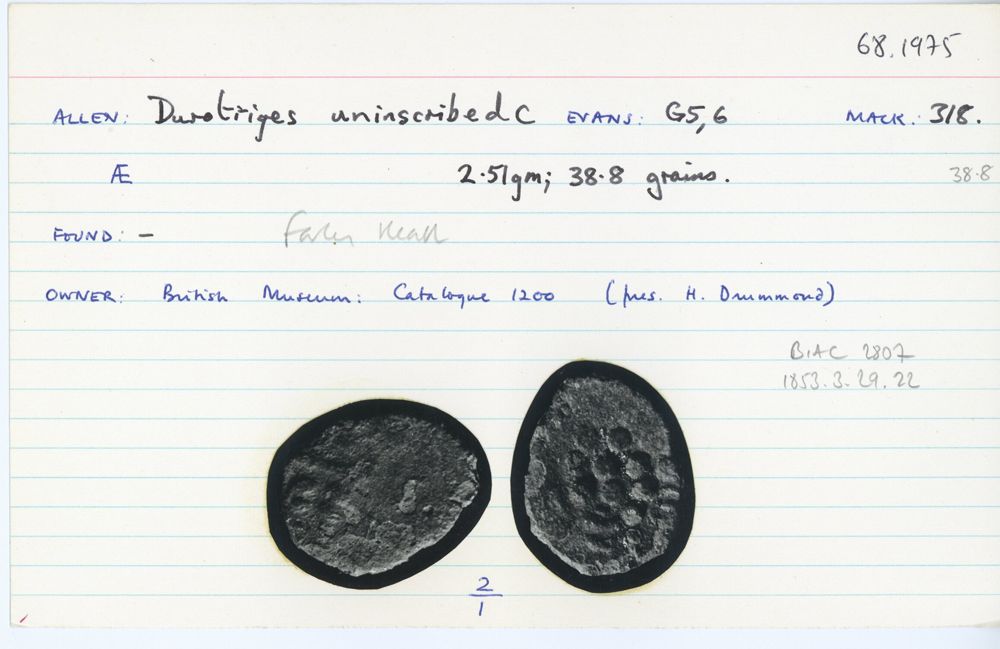 68.1975
ALLEN: Durotriges uninscribed C EVANS: G5,6 MACK: 318.
Æ 2.51gm; 38.8 grains. 38.8
FOUND: –
OWNER: British Museum: Catalogue 1200 (pres. H. Drummond)
BIAC 2807
1853.3.29.22
2
1